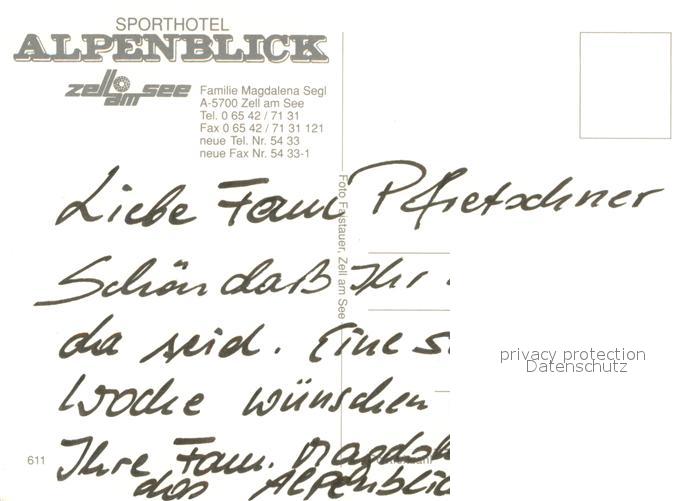 SPORTHOTEL
ALPENBLICK
zell am see
Familie Magdalena Segl
A-5700 Zell am See
Tel. 0 65 42 / 71 31
Fax 0 65 42 / 71 31 121
neue Tel. Nr. 54 33
neue Fax Nr. 54 33-1
Liebe Fam Pfretschner
Schön daß Ihr
da seid. Eine
Woche wünschen
Ihre Fam.
das Alpenblic
Foto Falstauer, Zell am See
611
privacy protection
Datenschutz